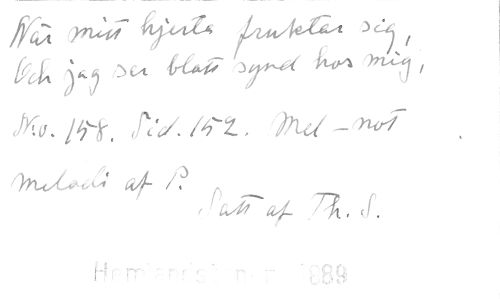 När mitt hjerta fruktar sig,
Och jag ser blott synd hos mig,
No. 158. Sid. 152. Mel-not
melodi af P.
Satt af Th. S.
Hemlandstoner 1889